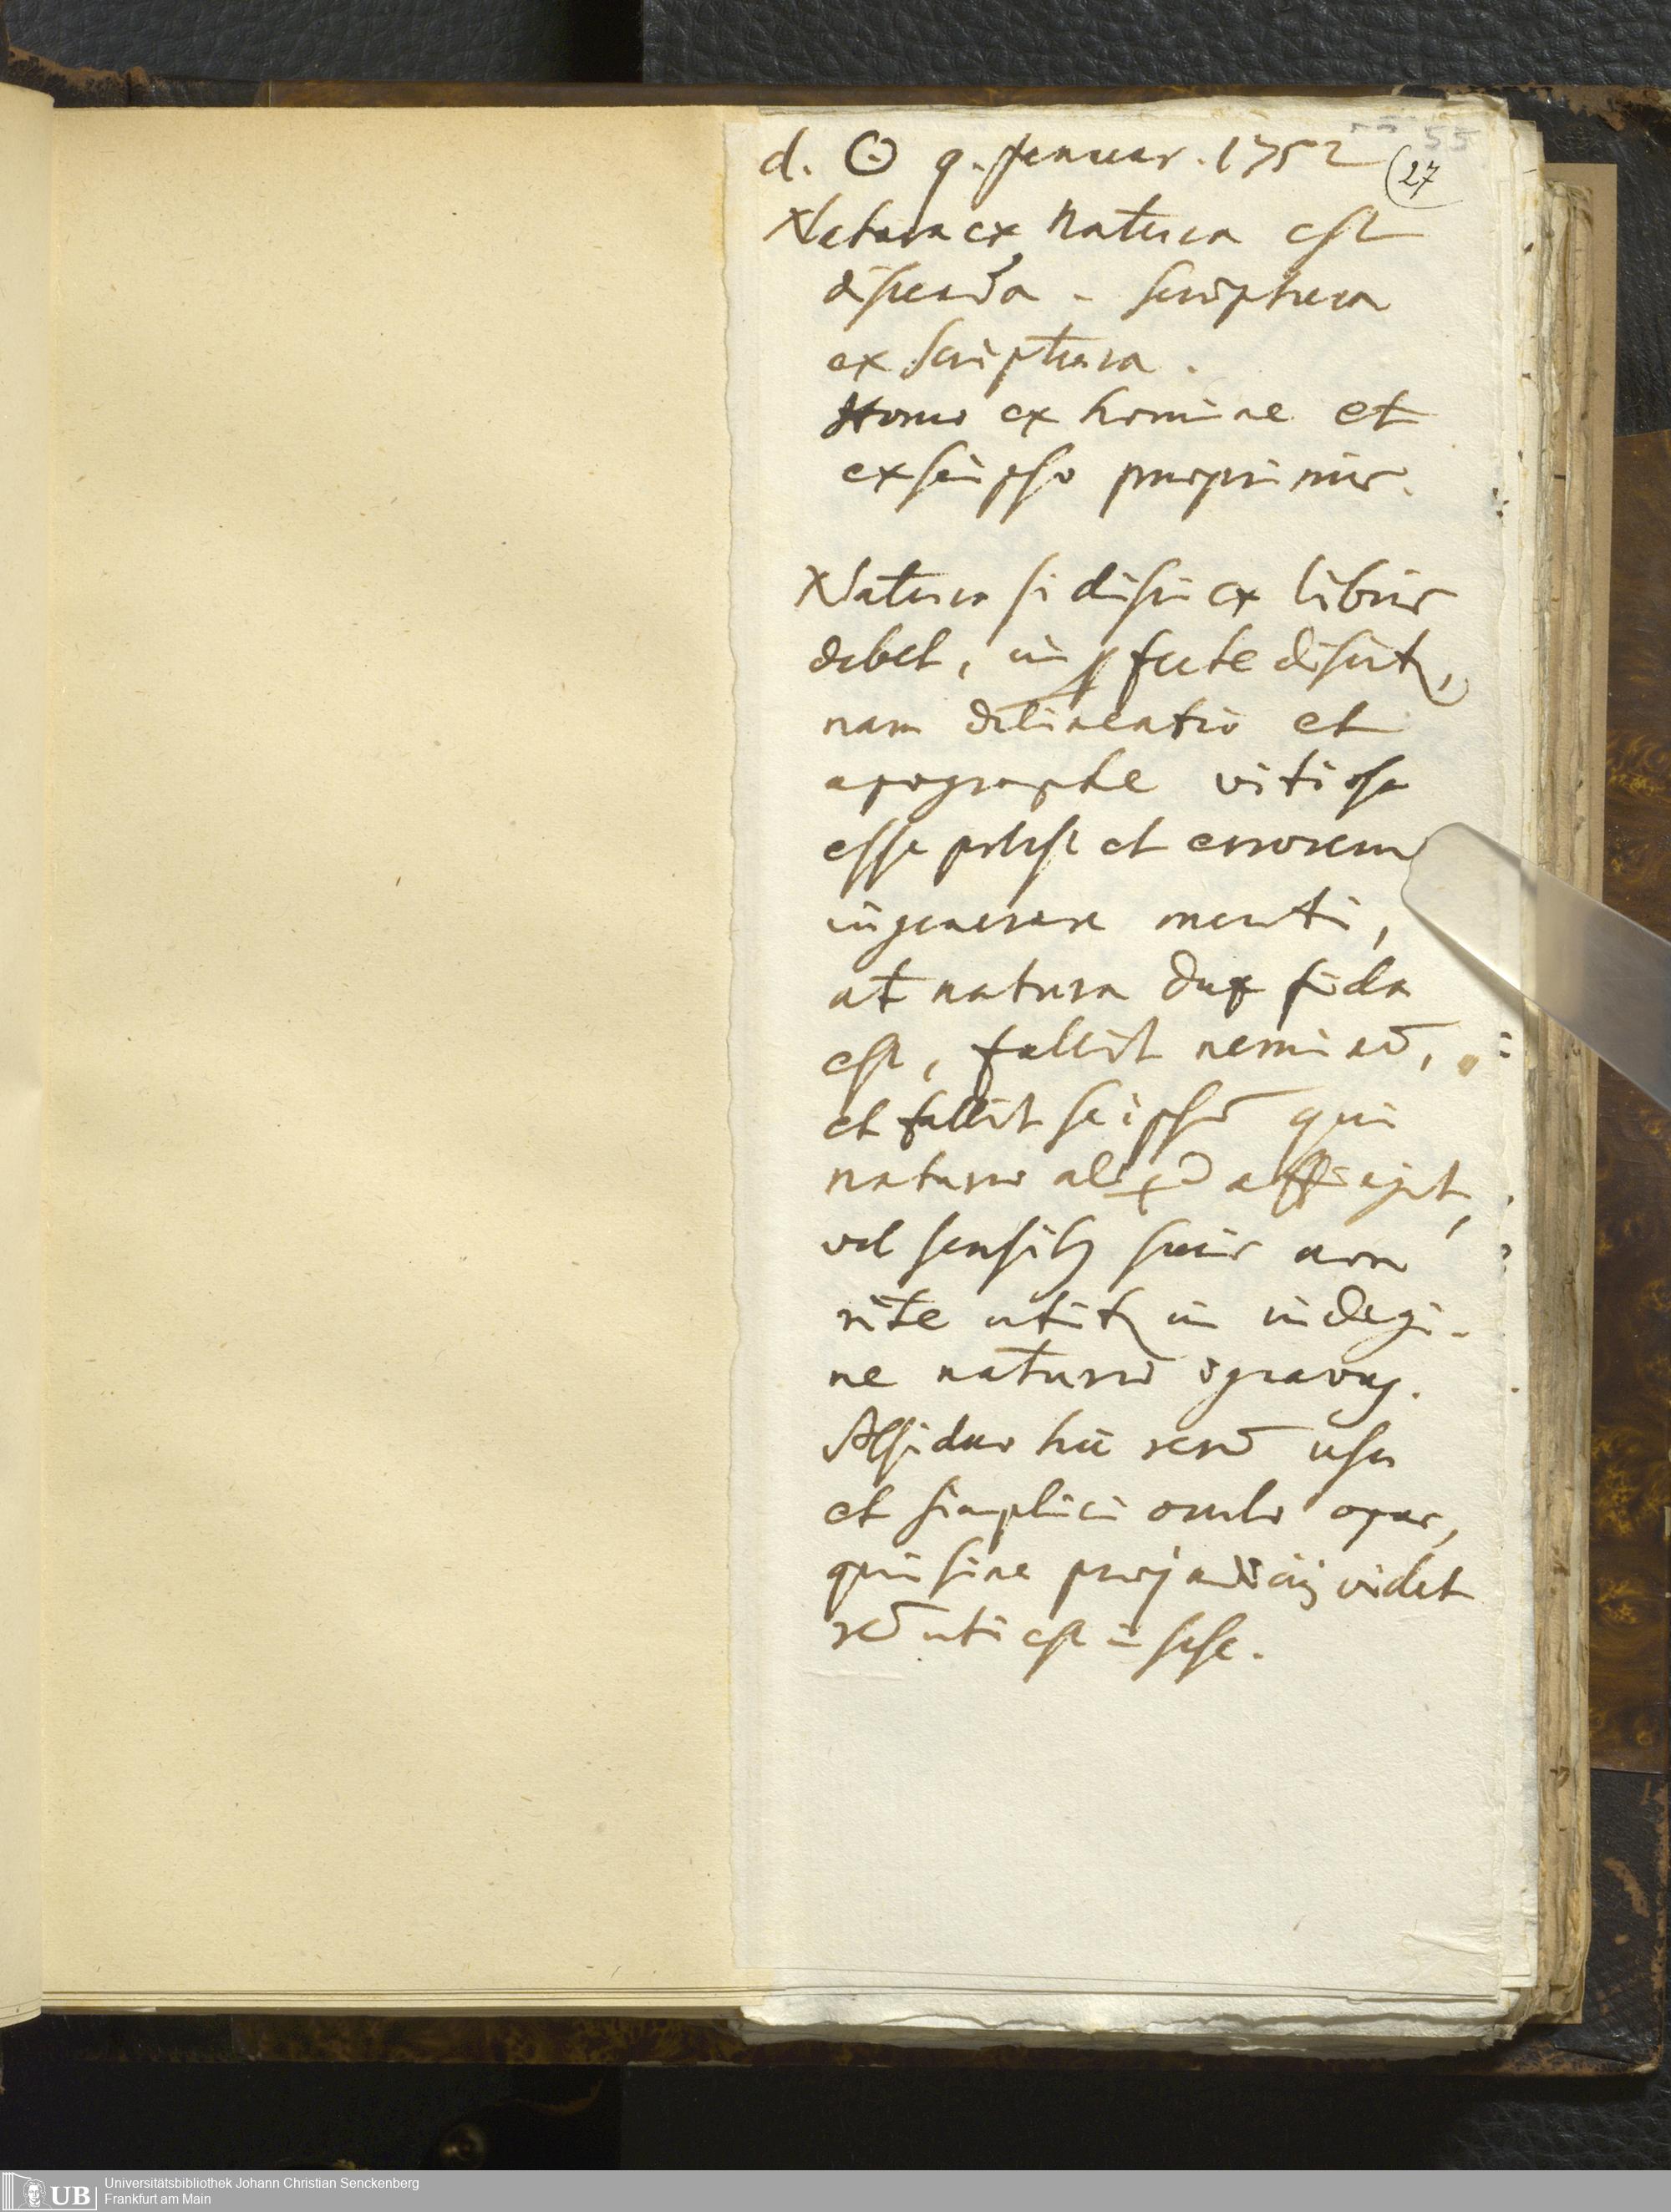 55
d. ☉ 9. Januar. 1752 (27
Natura ex Natura est
discenda - Scriptura
ex Scriptura.
Homo ex homine et
ex seipso
Natura si disci ex libris
debet, disćitr,
nam delineatio et
apographe vitiosa
esse potest et errorem
ingenerare menti,
at natura dux fida
est, fallit neminē,
et fallit seipsū qui
naturæ aliqd affingit,
vel sensibꝫ suis non
rite utitr in indagi-
ne naturæ
Assiduo hic rerū usu
et simplici oculo opus,
qui sine præjudicijs videt
rē uti est in sese.
UB Universitätsbibliothek Johann Christian Senckenberg
Frankfurt am Main